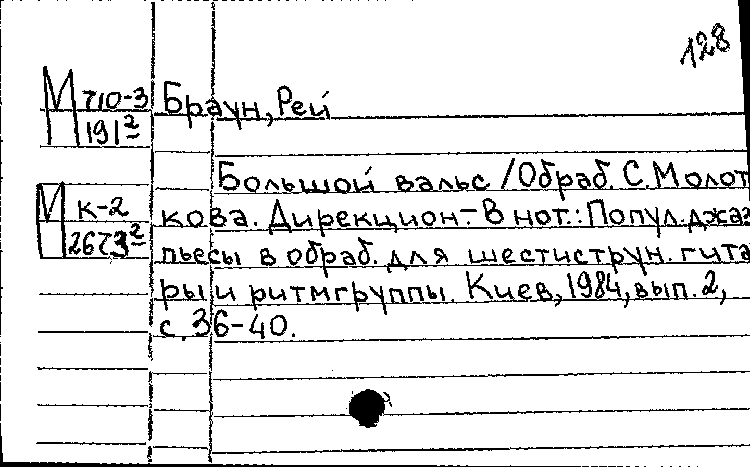 128
М 710-3
191²
Браун, Рей
Большой вальс /Обраб. С. Молот
М К-2
2673²
кова. Дирекцион.- В нот.: Попул. джаз
пьесы в обраб. для шестиструн. гита
ры и ритмгруппы. Киев, 1984, вып. 2,
с. 36-40.